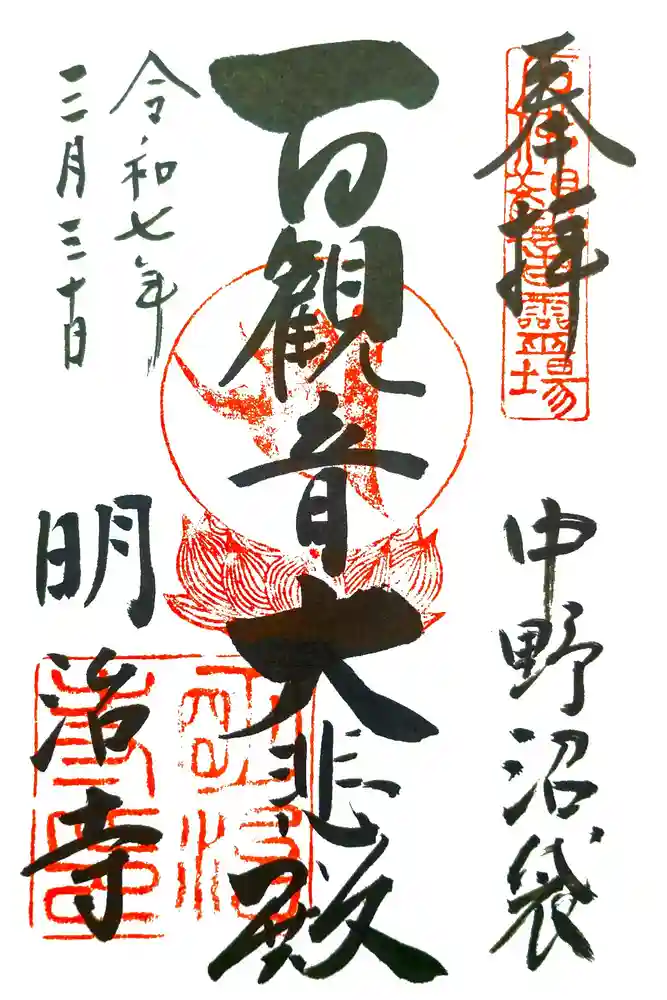 奉拝
中野沼袋
百観音大悲殿
令和七年
三月三十日
明治寺